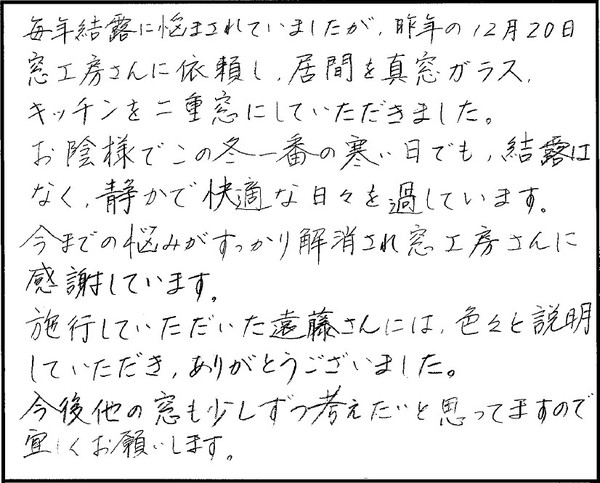 毎年結露に悩まされていましたが、昨年の12月20日
窓工房さんに依頼し、居間を真窓ガラス、
キッチンを二重窓にしていただきました。
お陰様でこの冬一番の寒い日でも、結露は
なく、静かで快適な日々を過しています。
今までの悩みがすっかり解消され窓工房さんに
感謝しています。
施行していただいた遠藤さんには、色々と説明
していただき、ありがとうございました。
今後他の窓も少しずつ考えたいと思ってますので
宜しくお願いします。